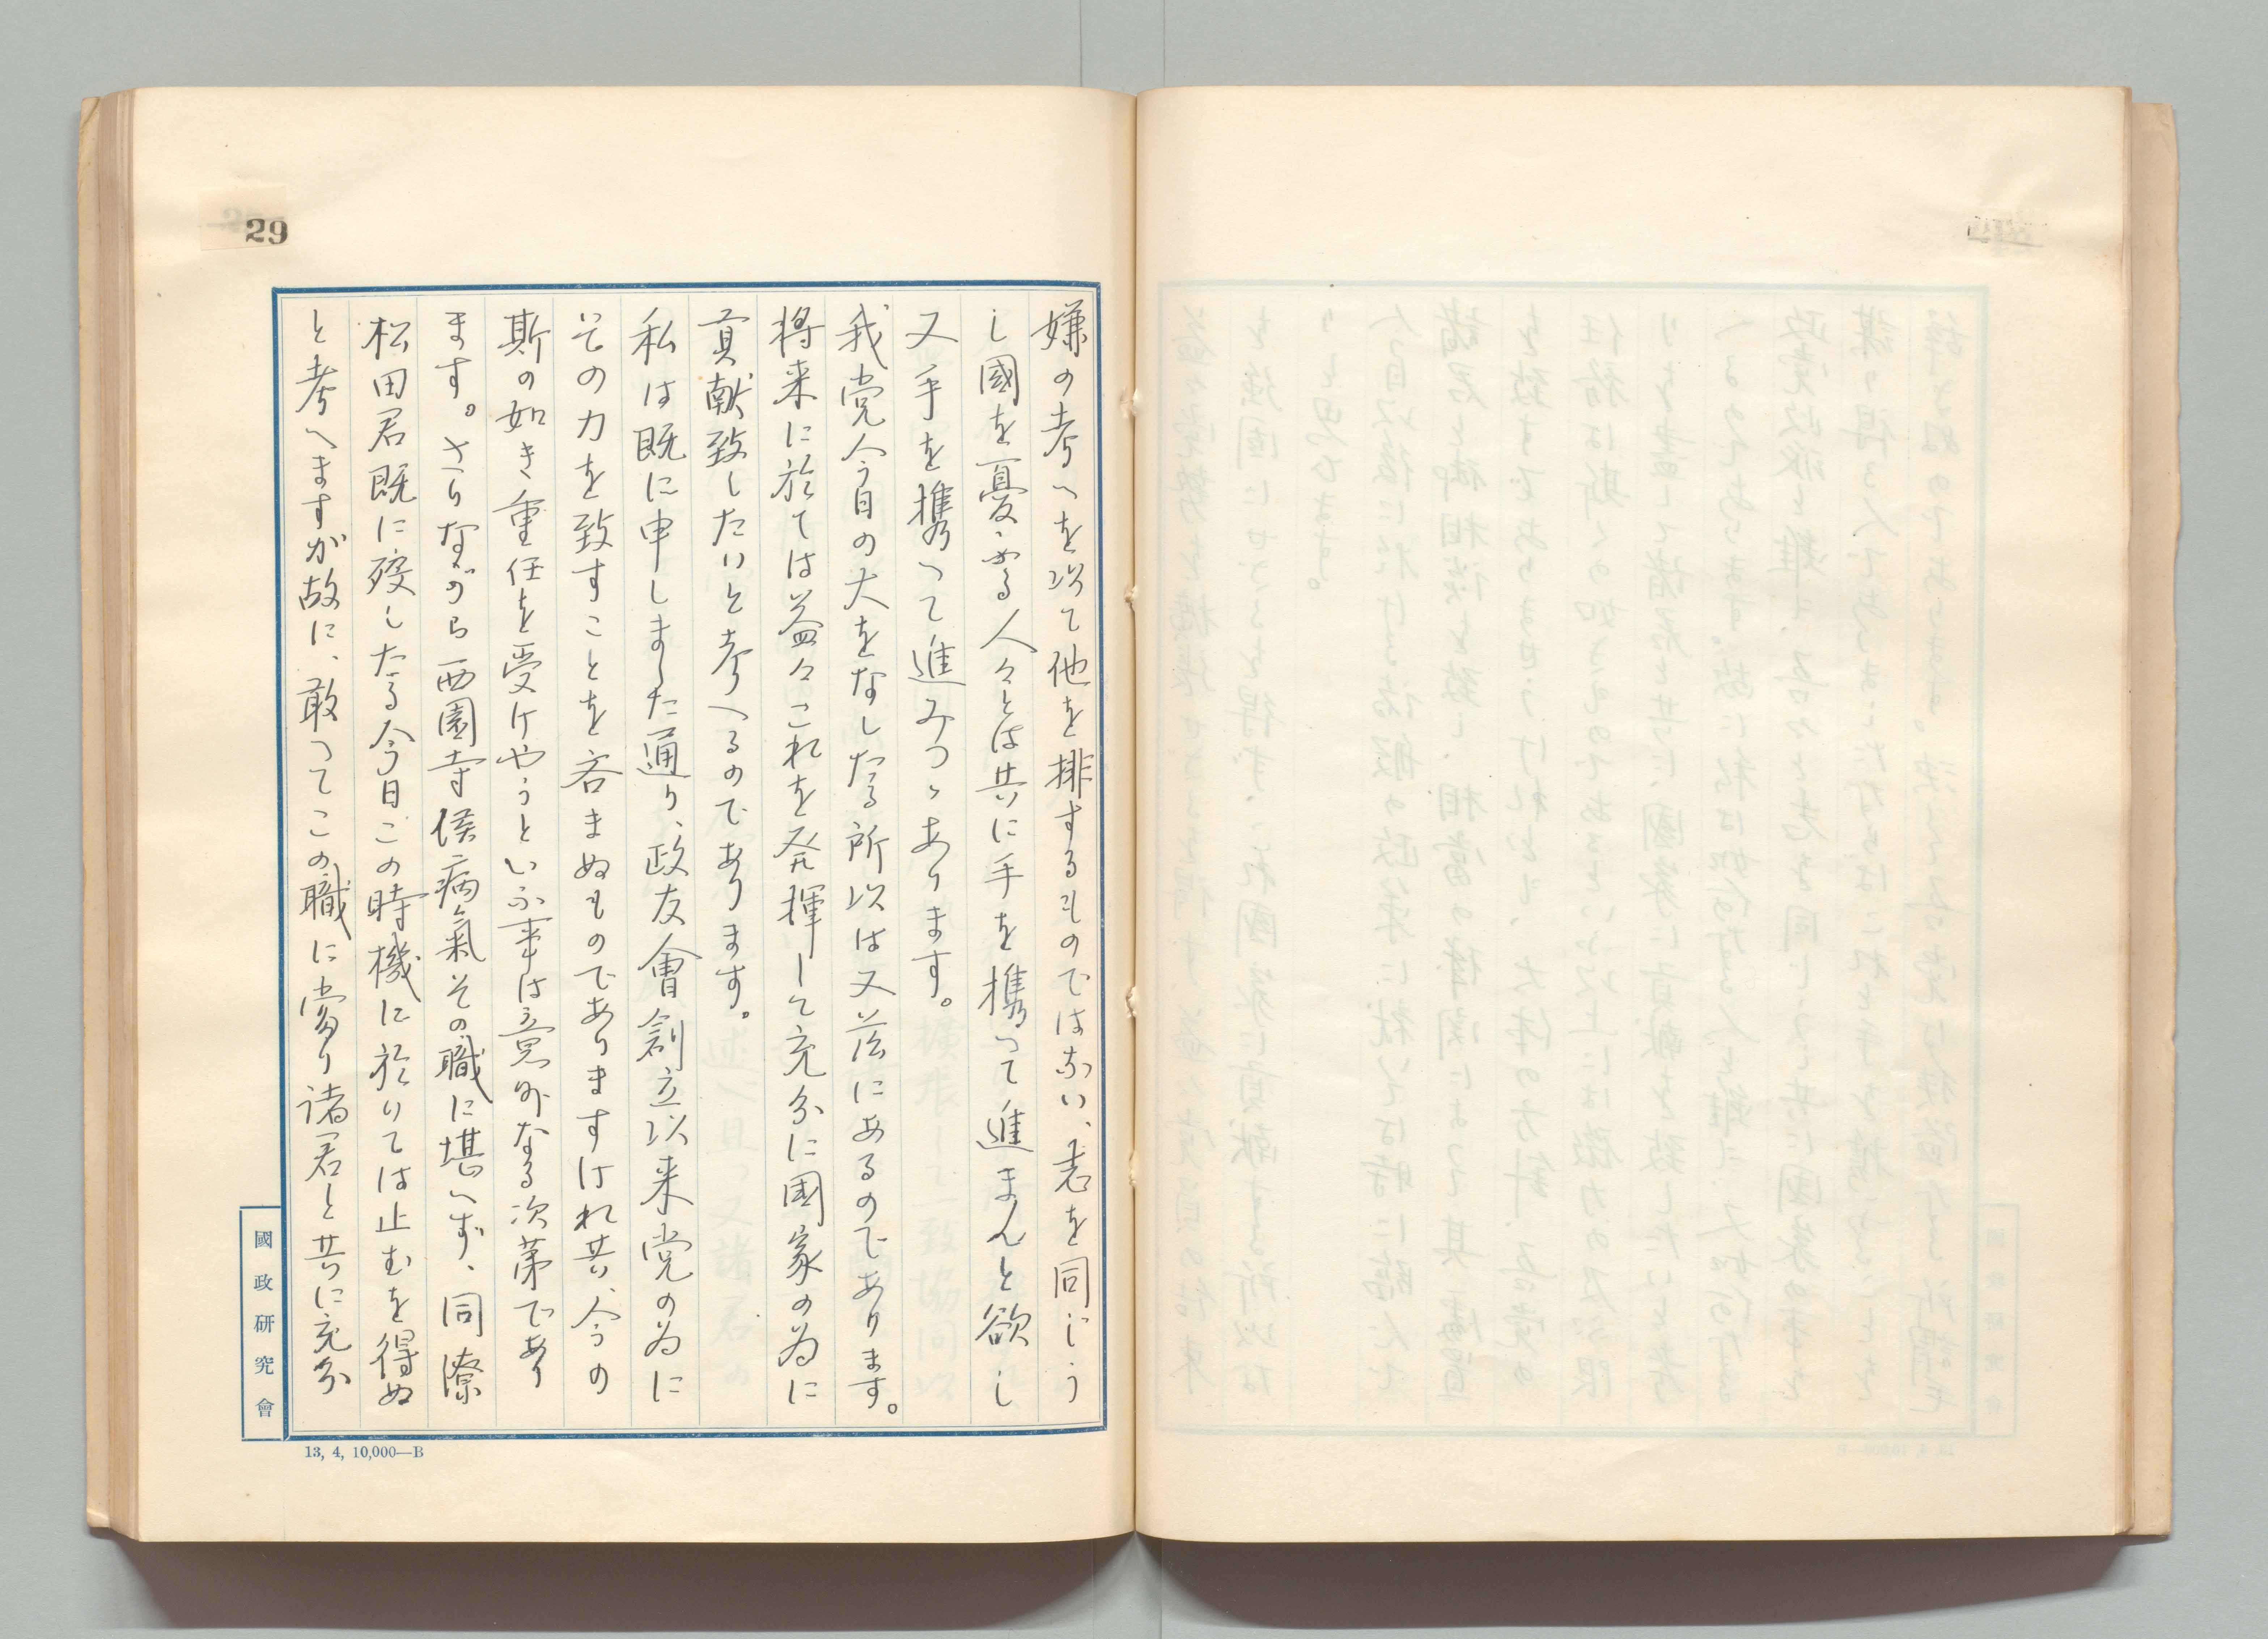 29
嫌の考へを以て他を排するものではない、志を同じう
し國を憂ふる人々とは共に手を携つて進まんと欲し
又手を携つて進みつゝあります。
我党今日の大をなしたる所以は又茲にあるのであります。
将来に於ては益々これを発揮して充分に国家の為に
貢献致したいと考へるのであります。
私は既に申しました通り、政友會創立以来党の為に
その力を致すことを吝まぬものでありますけれ共、今の
斯の如き重任を受けやうといふ事は意外なる次第であり
ます。さりながら西園寺侯病氣その職に堪へず、同僚
松田君既に歿したる今日この時機に於ては止むを得ぬ
と考へますが故に、敢つてこの職に當り諸君と共に充分
國政研究會
13, 4, 10,000—B